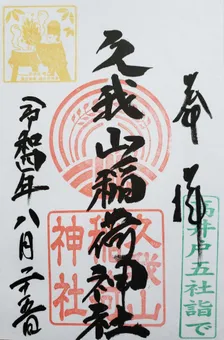 奉拝
久我山稲荷神社
令和四年八月二十五日
久我山
稲荷
神社
高井戸五社詣で